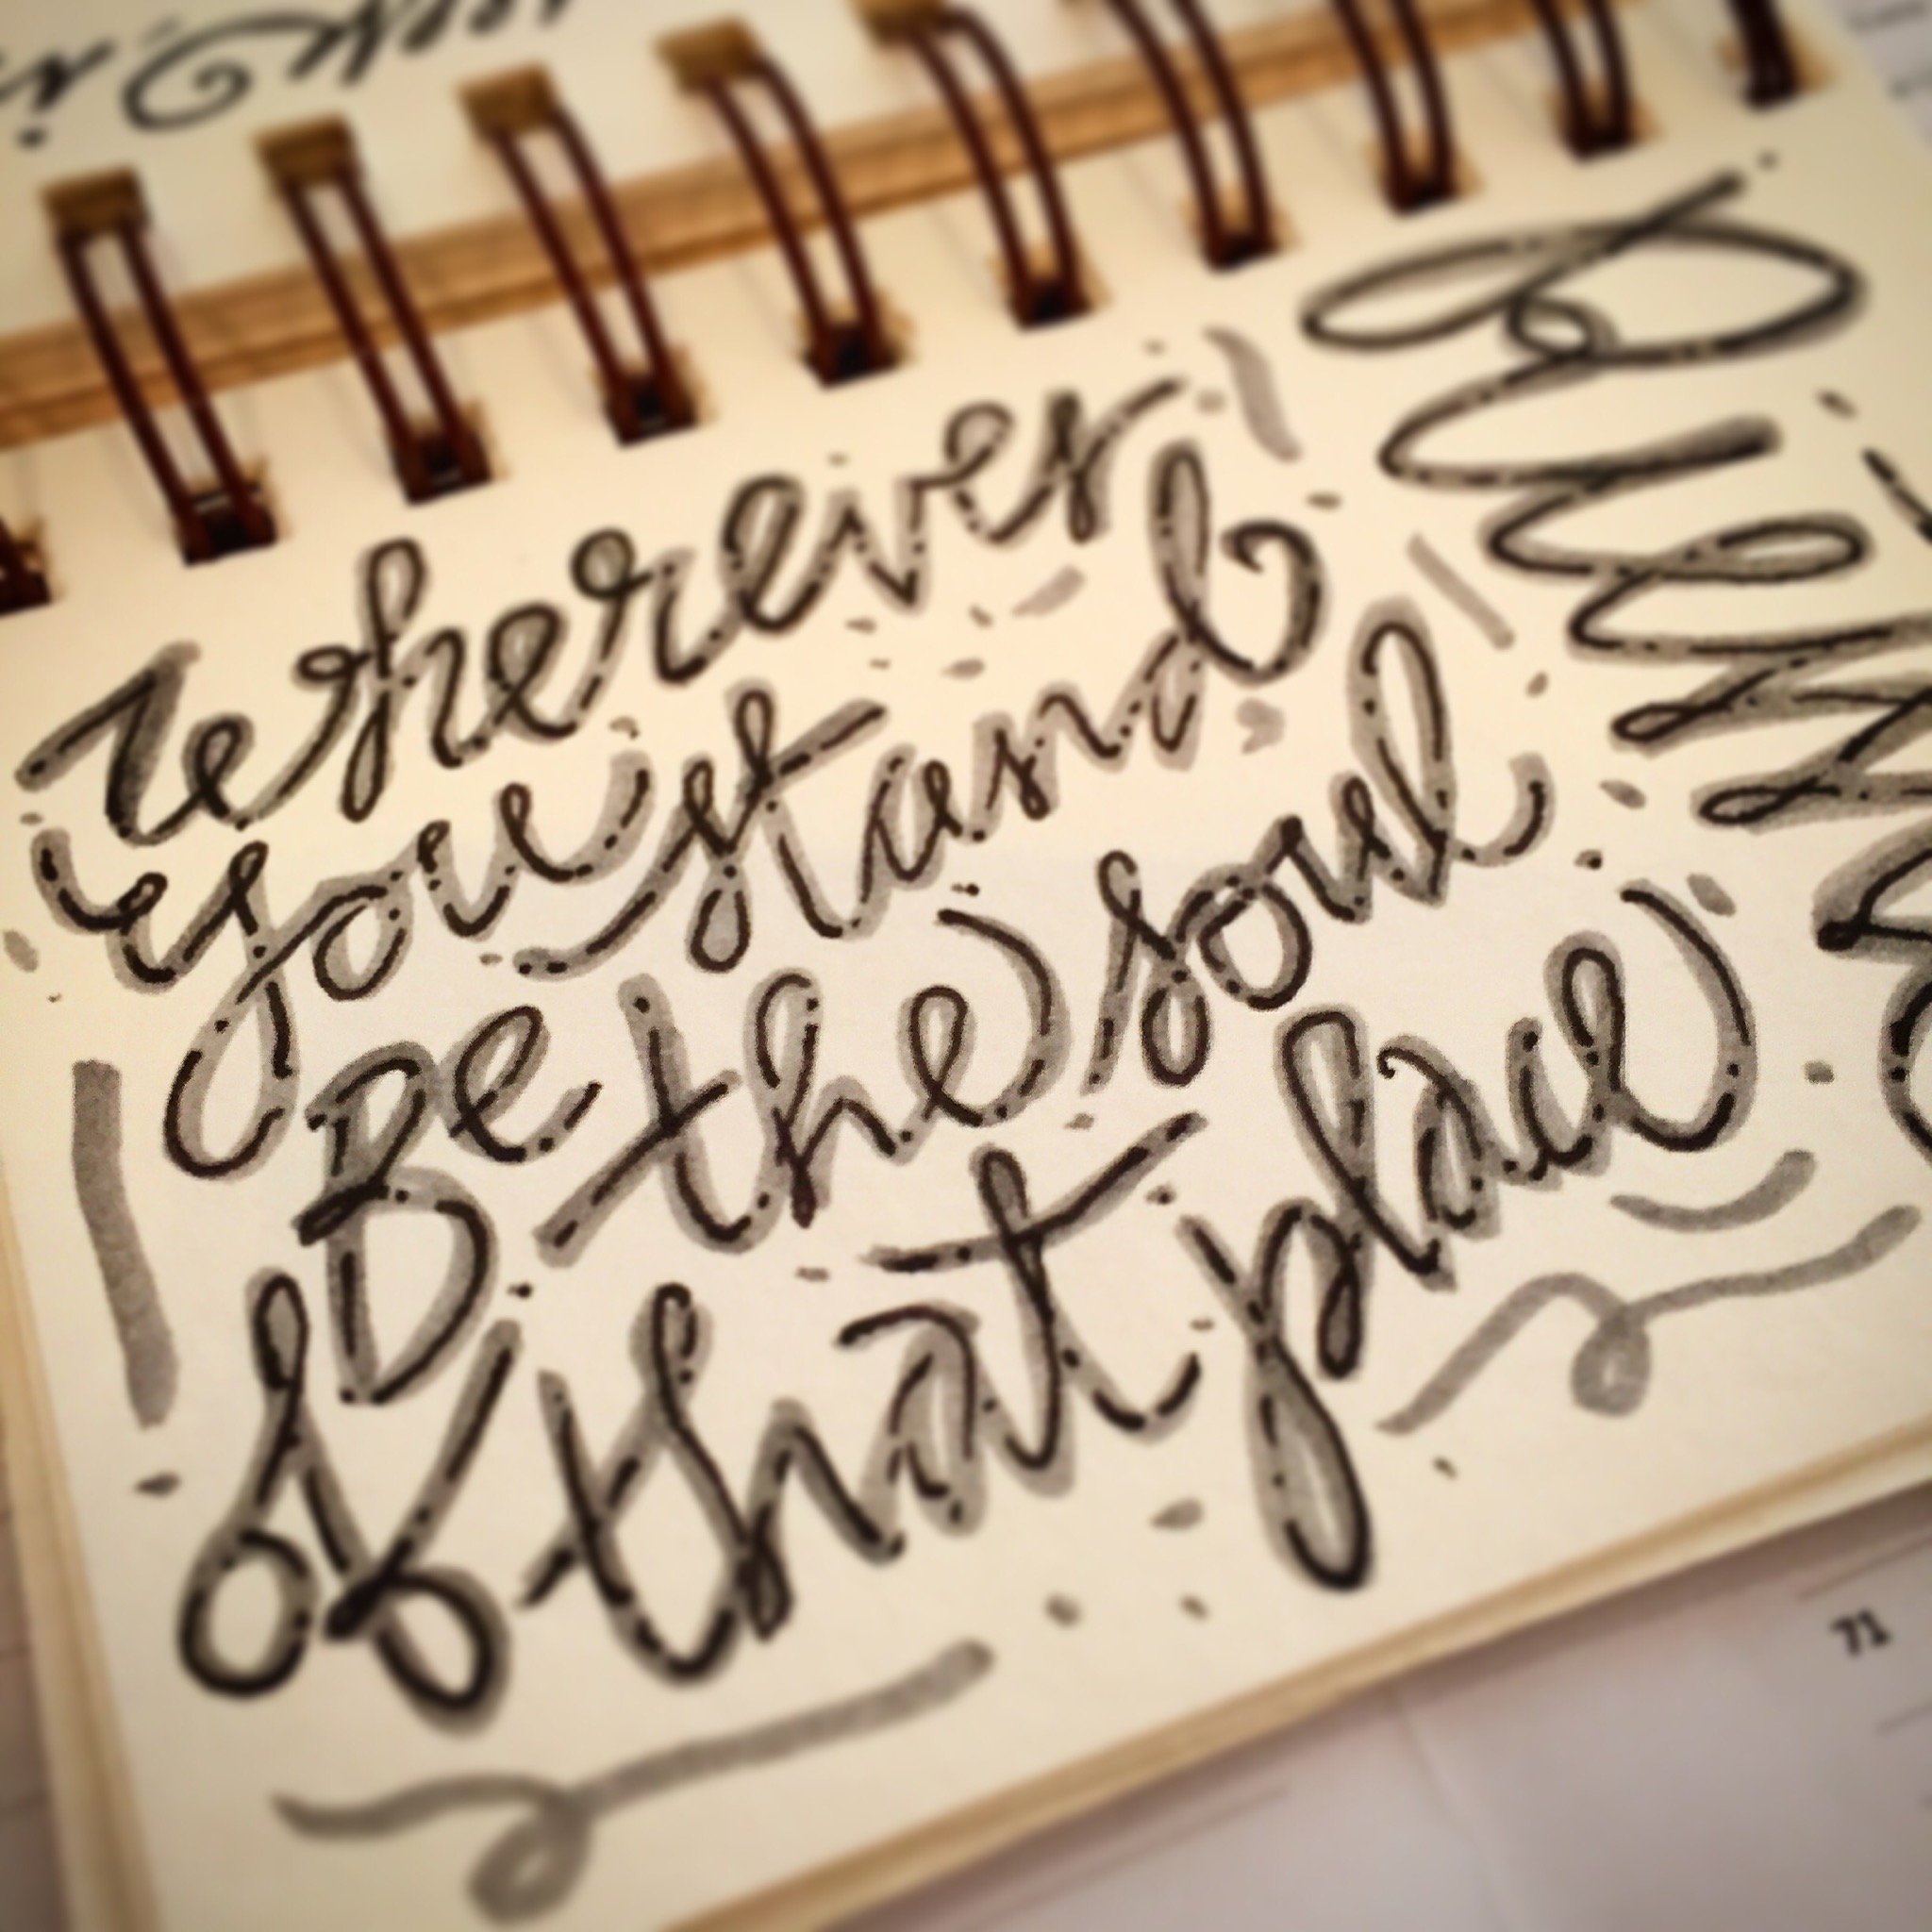 wherever
you stand
Be the soul
of that place
71